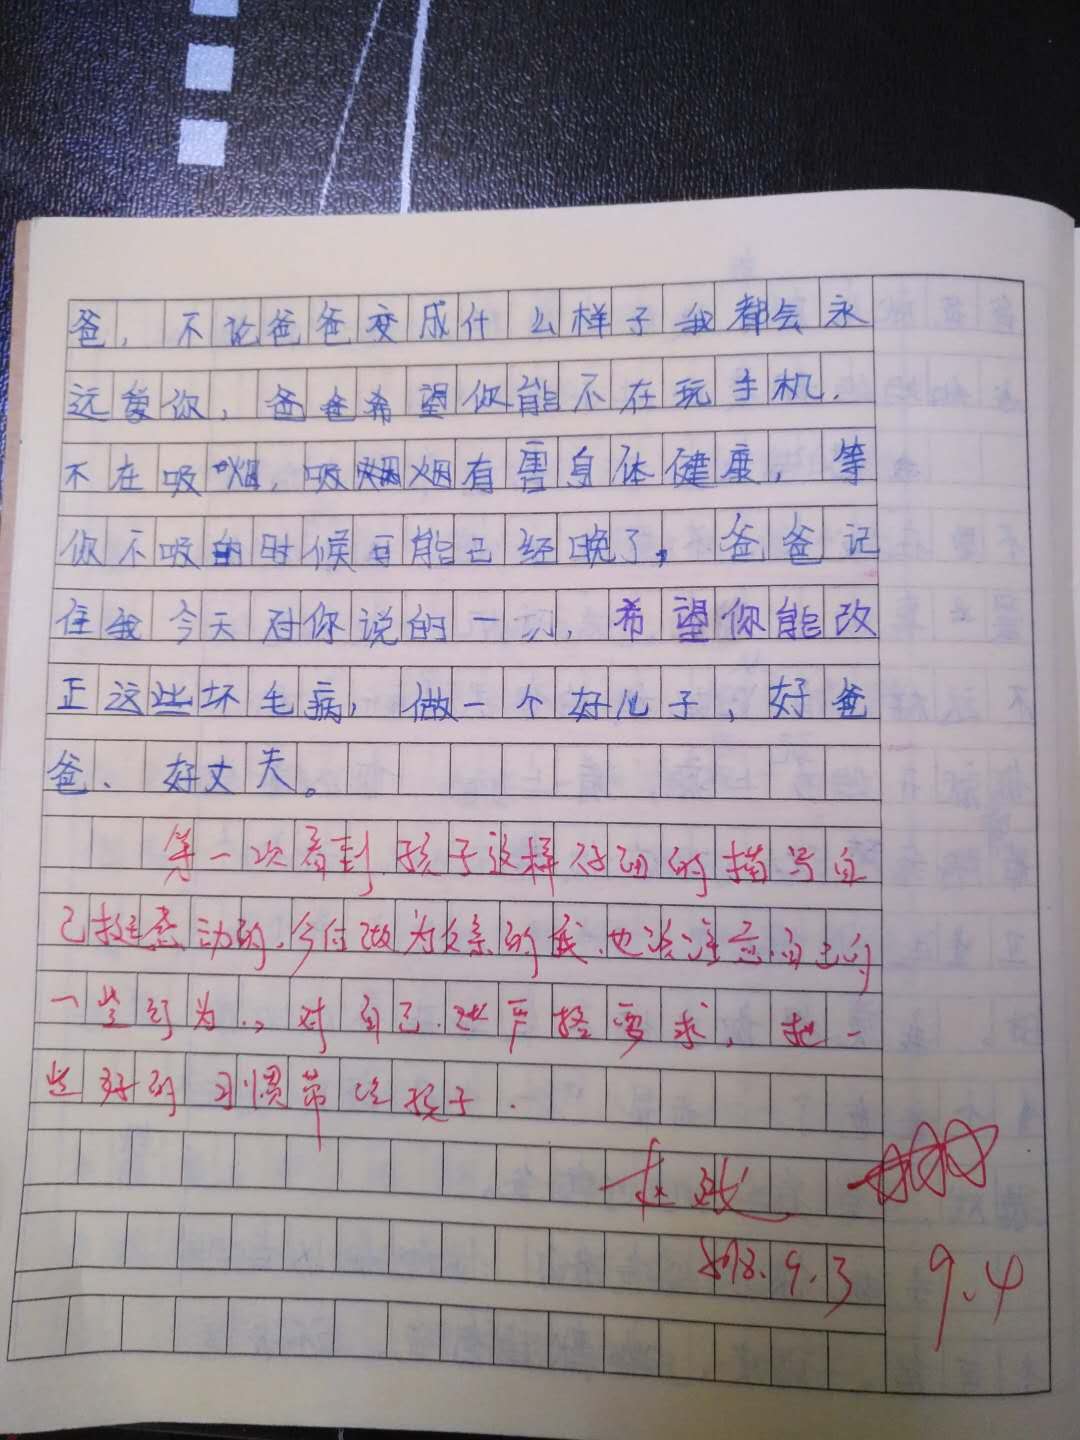 爸，不论爸爸变成什么样子我都会永
远爱你，爸爸希望你能不在玩手机.
不在吸烟，吸烟有害身体健康，等
你不吸的时候可能已经晚了，爸爸记
住我今天对你说的一切，希望你能改
正这些坏毛病，做一个好儿子、好爸
爸、好丈夫。
第一次看到孩子这样的描写自
己挺感动的.今后做为父亲的我.也该注意自己的
一些行为.，对自己严格要求，把一
些好的习惯带给孩子.
2018.9.3
9.4